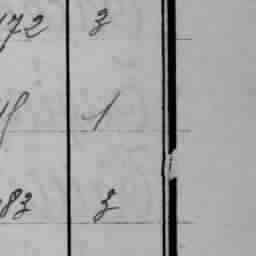 172 3
1
183 3